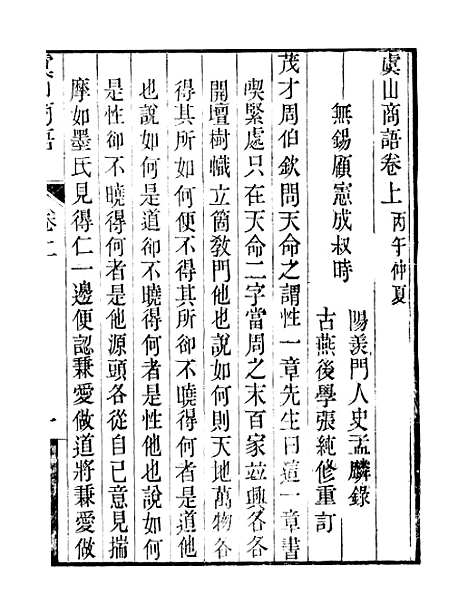 虞山商語卷上 丙午仲夏
陽羨門人史孟麟錄
無錫顧憲成叔時
古燕後學張純修重訂
茂才周伯欽問天命之謂性一章先生曰這一章書
喫緊處只在天命二字當周之末百家並興各各
開壇樹幟立箇敎門他也說如何則天地萬物各
得其所如何便不得其所卻不曉得何者是道他
也說如何是道卻不曉得何者是性他也說如何
是性卻不曉得何者是他源頭各從自己意見揣
摩如墨氏見得仁一邊便認兼愛做道將兼愛做
虞山商語
卷上
一